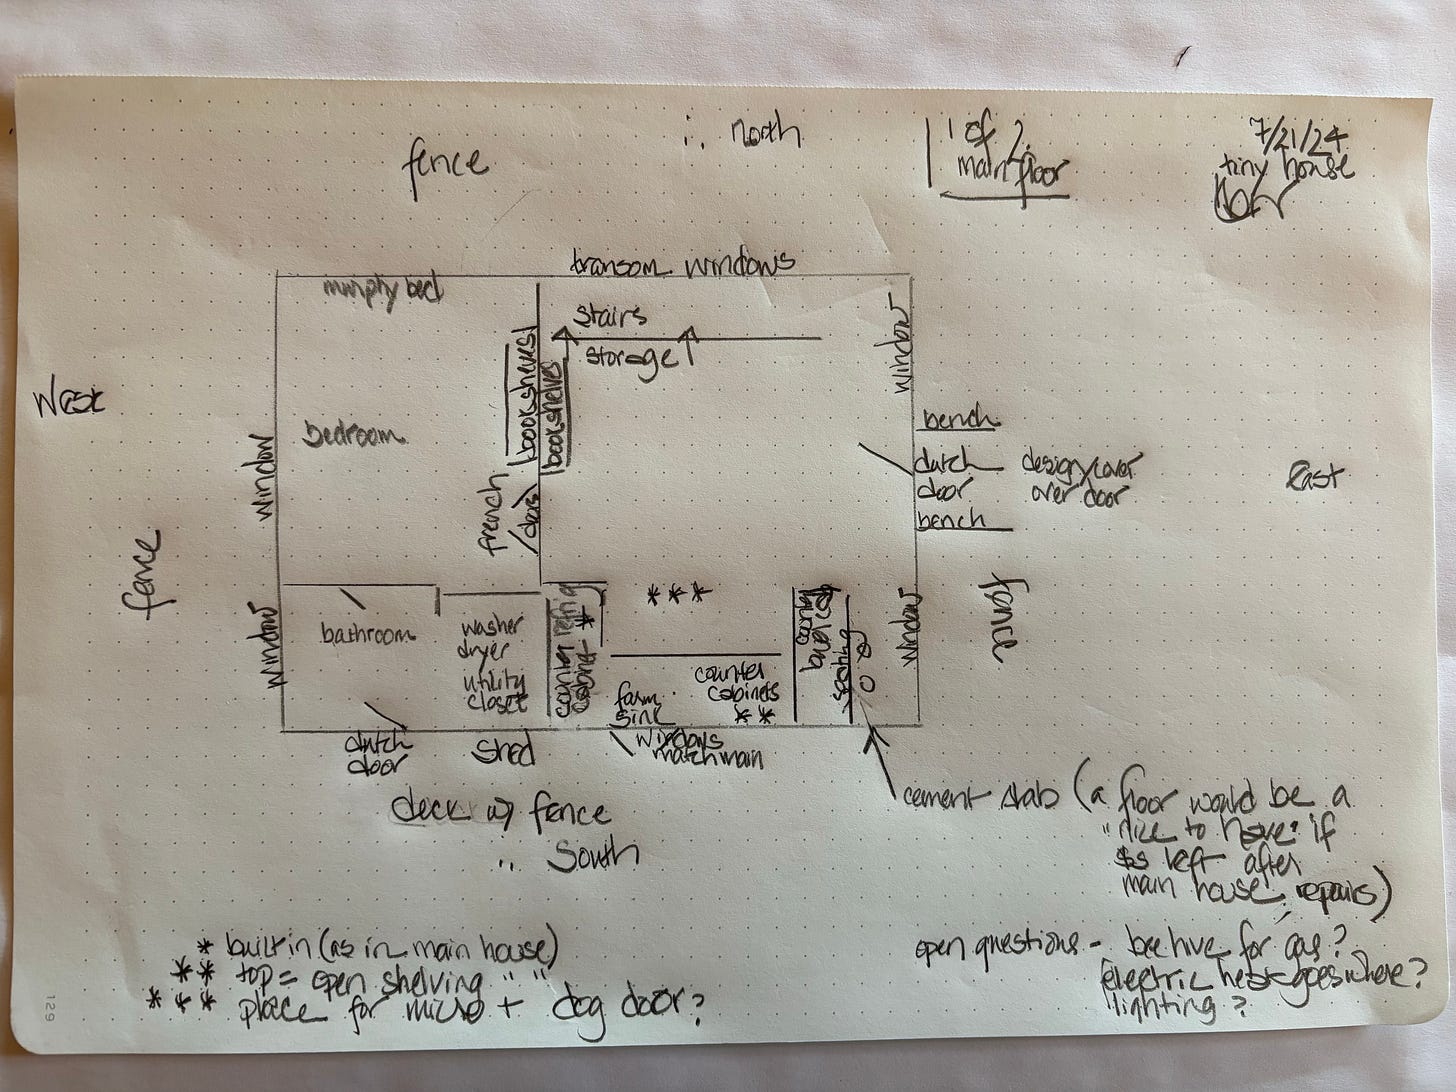 fence
north
1 of 2
main floor
7/21/24
tiny house
transom windows
murphy bed
stairs
storage
bookshelves
bookshelves
window
West
bedroom
window
french
doors
bench
dutch
door
design/cover
over door
bench
East
fence
window
bathroom
washer
dryer
utility
closet
counter
cabinet
refrig
*
***
farm
sink
counter
cabinets
**
counter
seating
window
fence
dutch
door
shed
windows
match main
deck w/ fence
South
cement slab (a floor would be a
"nice to have" if
$s left after
main house repairs)
* built in (as in main house)
** top = open shelving " "
*** place for micro + dog door?
open questions - beehive for gas?
electric heat goes where?
lighting?
129